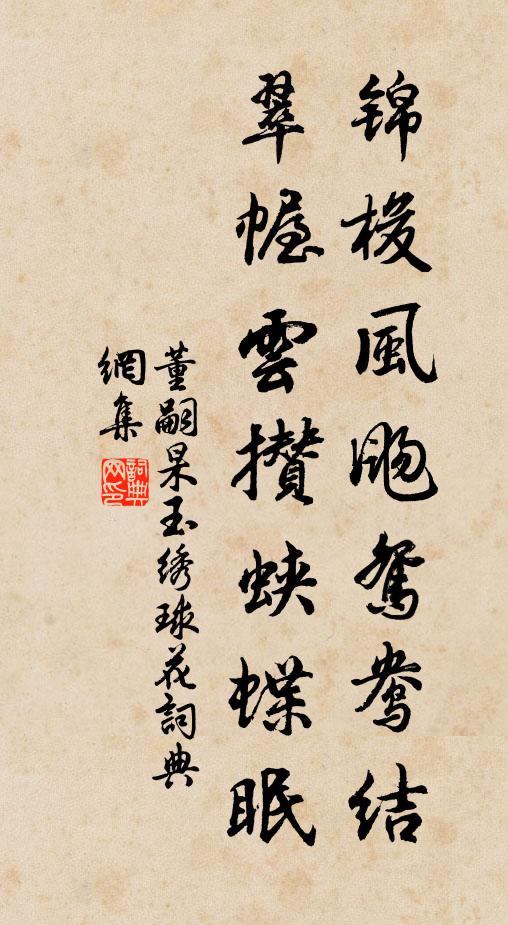 锦梭風颺鴛鴦结
翠幄雲攅蛱蝶眠
董嗣杲玉绣球花詞典
網集
詞典網印